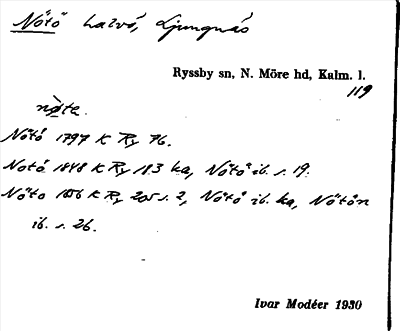 Nötö halvö, Ljungnäs
Ryssby sn, N. Möre hd, Kalm. l.
119
nøta.
Nötö 1797 K Ry 76.
Notö 1848 K Ry 183 ka, Nötö ib. s. 19.
Nöto 1856 K Ry 205 s. 2, Nötö ib. ka, Nötön
ib. s. 26.
Ivar Modéer 1930